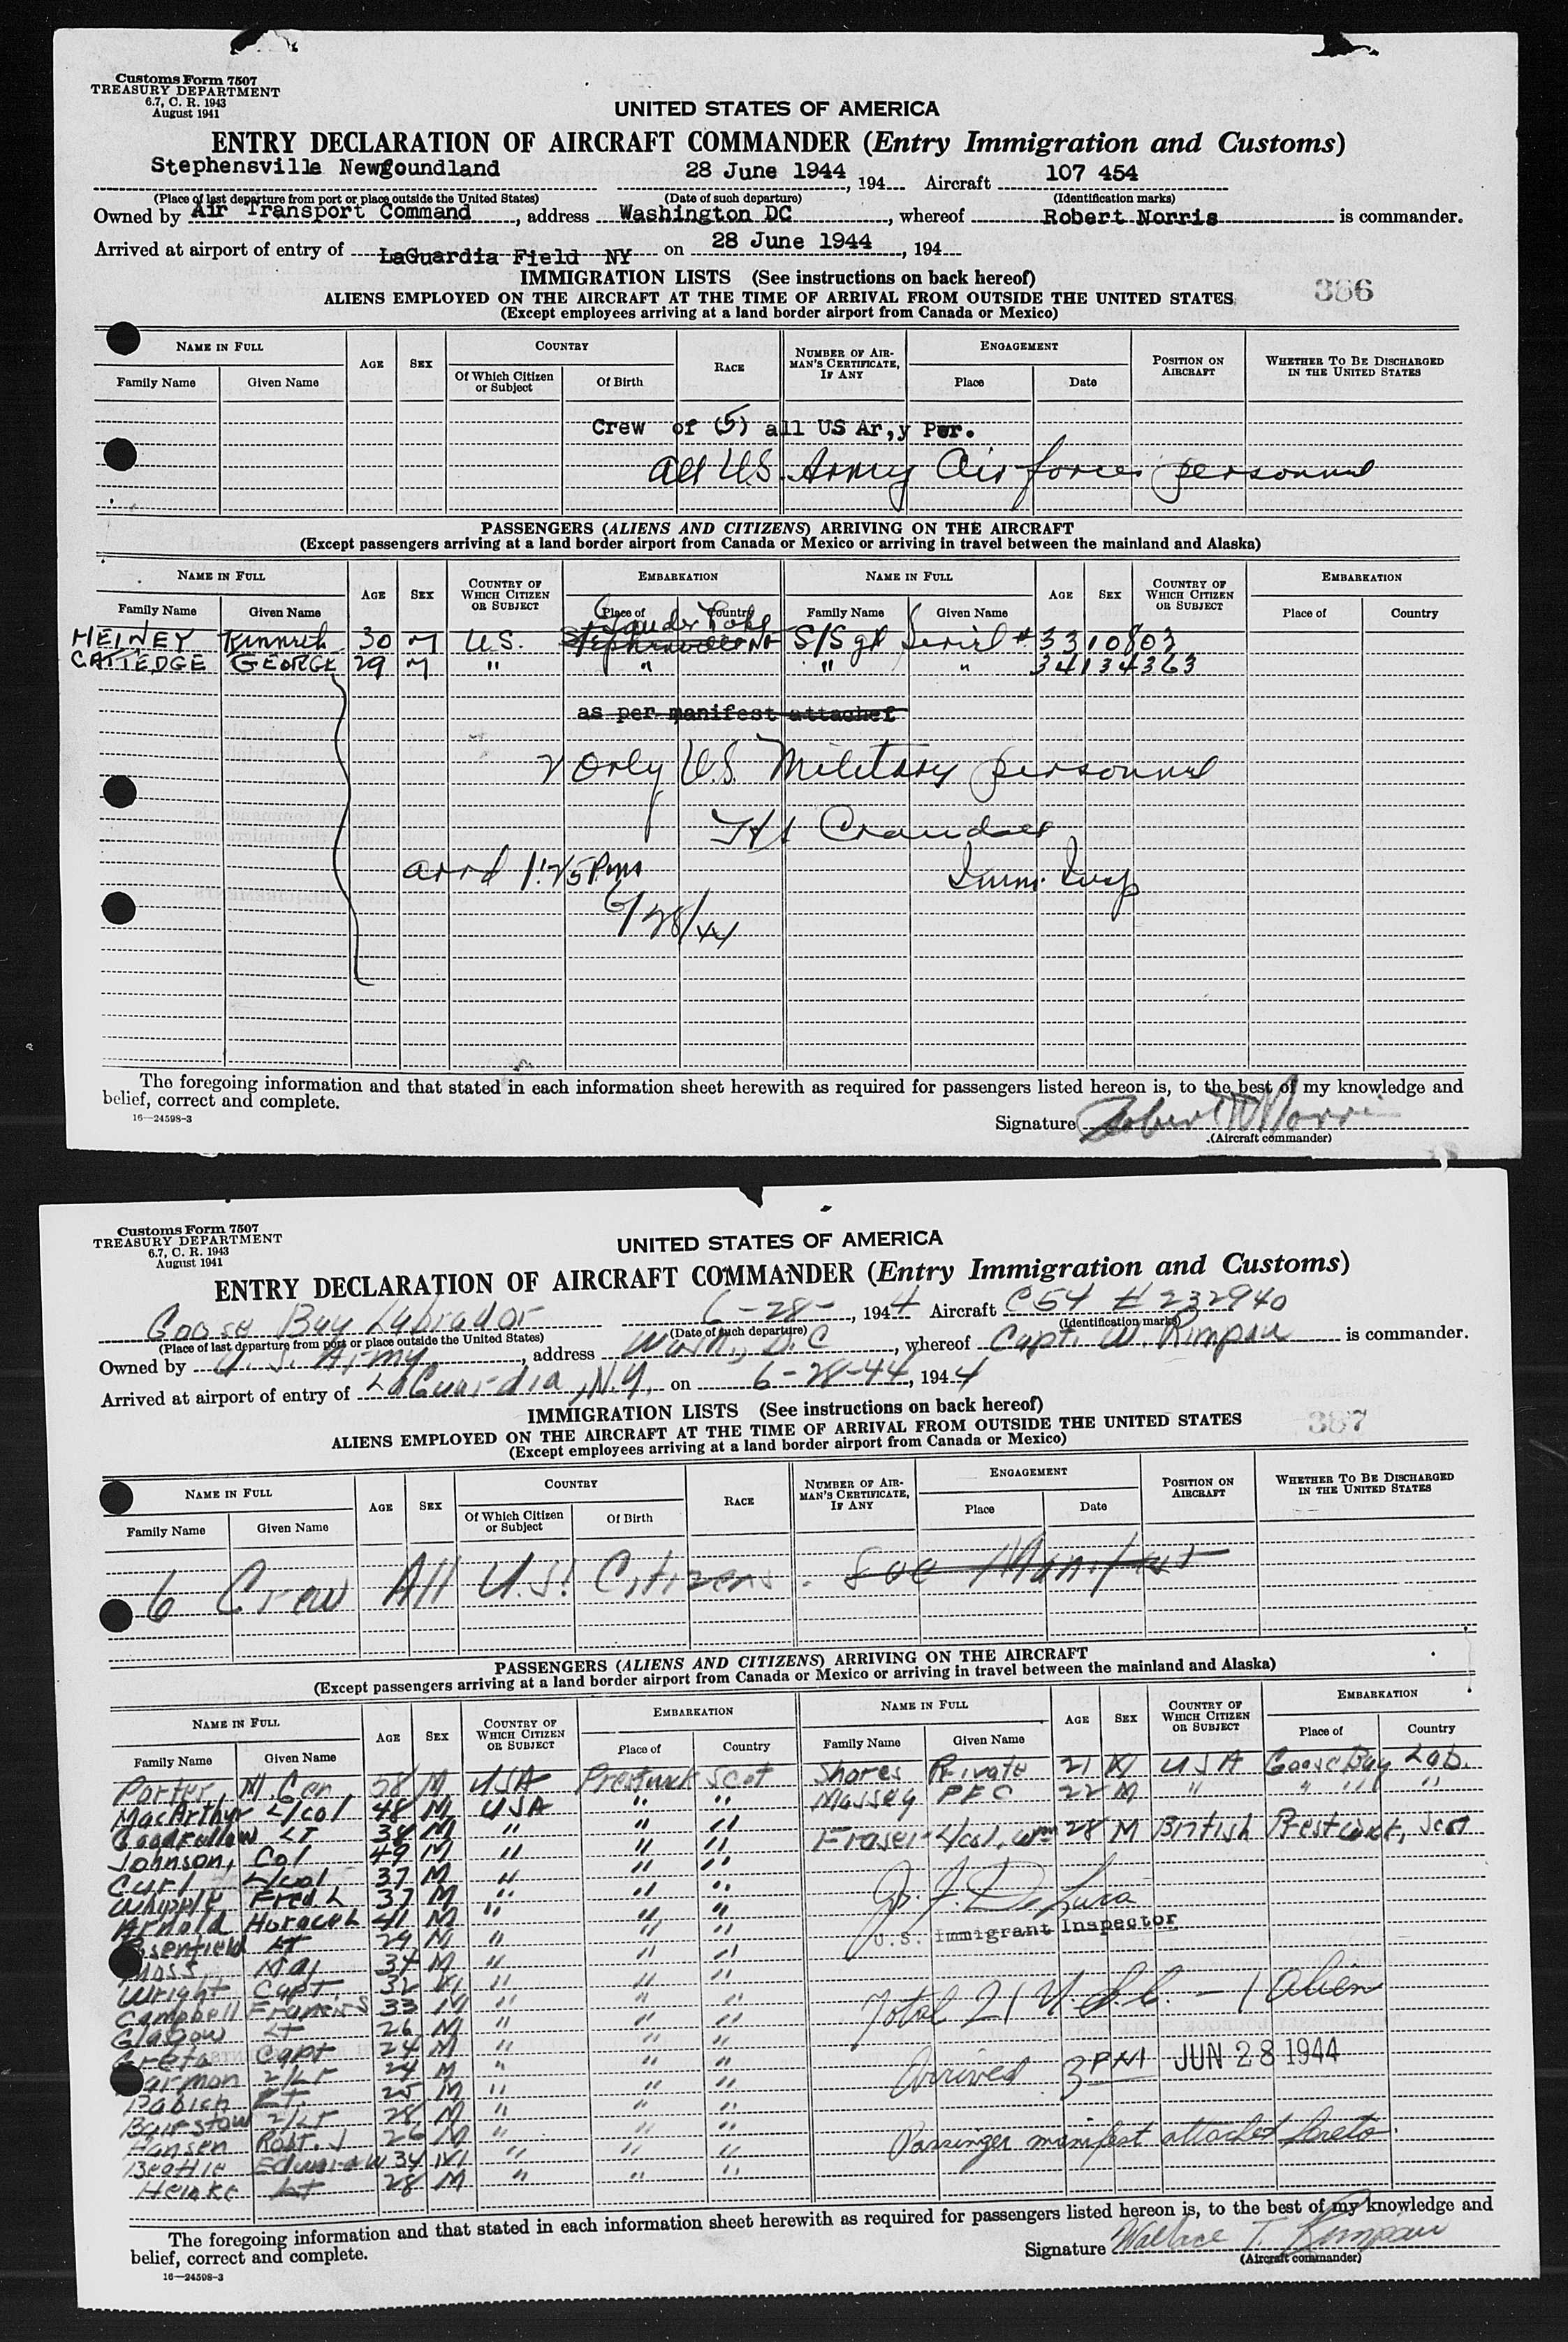 Customs Form 7507
TREASURY DEPARTMENT
6.7, C. R. 1943
August 1941
UNITED STATES OF AMERICA
ENTRY DECLARATION OF AIRCRAFT COMMANDER (Entry Immigration and Customs)
Stephensville Newfoundland 28 June 1944, 194 Aircraft 107 454
(Place of last departure from port or place outside the United States) (Date of such departure) (Identification marks)
Owned by Air Transport Command, address Washington DC, whereof Robert Norris is commander.
Arrived at airport of entry of LaGuardia Field NY on 28 June 1944, 194
IMMIGRATION LISTS (See instructions on back hereof)
386
ALIENS EMPLOYED ON THE AIRCRAFT AT THE TIME OF ARRIVAL FROM OUTSIDE THE UNITED STATES
(Except employees arriving at a land border airport from Canada or Mexico)
NAME IN FULL AGE SEX COUNTRY RACE NUMBER OF AIRMAN'S CERTIFICATE, IF ANY ENGAGEMENT POSITION ON AIRCRAFT WHETHER TO BE DISCHARGED IN THE UNITED STATES
Family Name Given Name Of Which Citizen or Subject Of Birth Place Date
Crew of (5) all US Ar,y Per.
All U.S. Army Air forces personnel
PASSENGERS (ALIENS AND CITIZENS) ARRIVING ON THE AIRCRAFT
(Except passengers arriving at a land border airport from Canada or Mexico or arriving in travel between the mainland and Alaska)
NAME IN FULL AGE SEX COUNTRY OF WHICH CITIZEN OR SUBJECT EMBARKATION NAME IN FULL AGE SEX COUNTRY OF WHICH CITIZEN OR SUBJECT EMBARKATION
Family Name Given Name Place of Country Family Name Given Name Place of Country
Gander
HEINEY 30 M U.S. Stephenville Nf S/Sgt Serial # 3310803
CATTEDGE GEORGE 29 M " " " " 34134363
as per manifest attached
2 Only U.S. Military personnel
Crandall
arrd 1:25 Pm Imm. Insp
6/28/44
The foregoing information and that stated in each information sheet herewith as required for passengers listed hereon is, to the best of my knowledge and
belief, correct and complete.
16—24598-3
Signature Robert Norris
(Aircraft commander)
Customs Form 7507
TREASURY DEPARTMENT
6.7, C. R. 1943
August 1941
UNITED STATES OF AMERICA
ENTRY DECLARATION OF AIRCRAFT COMMANDER (Entry Immigration and Customs)
Goose Bay Labrador 6-28-, 1944 Aircraft C54 # 232940
(Place of last departure from port or place outside the United States) (Date of such departure) (Identification marks)
Owned by U.S. Army, address Wash., D.C, whereof Capt. W. Rimpau is commander.
Arrived at airport of entry of LaGuardia, N.Y. on 6-28-44, 1944
IMMIGRATION LISTS (See instructions on back hereof)
387
ALIENS EMPLOYED ON THE AIRCRAFT AT THE TIME OF ARRIVAL FROM OUTSIDE THE UNITED STATES
(Except employees arriving at a land border airport from Canada or Mexico)
NAME IN FULL AGE SEX COUNTRY RACE NUMBER OF AIRMAN'S CERTIFICATE, IF ANY ENGAGEMENT POSITION ON AIRCRAFT WHETHER TO BE DISCHARGED IN THE UNITED STATES
Family Name Given Name Of Which Citizen or Subject Of Birth Place Date
6 Crew All U.S. Citizens. See Manifest
PASSENGERS (ALIENS AND CITIZENS) ARRIVING ON THE AIRCRAFT
(Except passengers arriving at a land border airport from Canada or Mexico or arriving in travel between the mainland and Alaska)
NAME IN FULL AGE SEX COUNTRY OF WHICH CITIZEN OR SUBJECT EMBARKATION NAME IN FULL AGE SEX COUNTRY OF WHICH CITIZEN OR SUBJECT EMBARKATION
Family Name Given Name Place of Country Family Name Given Name Place of Country
Porter, M Gen 58 M USA Prestwick Scot Shores Private 21 M USA Goose Bay Lab.
MacArthur L/col 48 M USA " " Massey PFC 22 M " " " "
Goodfellow LT 38 M " " " Fraser L/col. Wm 28 M British Prestwick, Scot
Johnson, Col 49 M " " "
Curl L/col 37 M " " "
Whipple Fred L 37 M " " "
Arnold Horace L 41 M " " "
Rosenfield LT 29 M " " "
Moss Maj 34 M " " "
Wright Capt. 32 M " " "
Campbell Francis S 33 M " " "
Glasgow LT 26 M " " "
Greta Capt 24 M " " "
armon 2/LT 24 M " " "
Babich LT. 25 M " " "
Bairstow 2/LT 28 M " " "
Hansen Robt. J 26 M " " "
Beattie Edward W 34 M " " "
Heinke LT 28 M " " "
J. DeLuca
U.S. Immigrant Inspector
Total 21 U.S.C. - 1 Alien
Arrived 3 PM JUN 28 1944
Passenger manifest attached hereto.
The foregoing information and that stated in each information sheet herewith as required for passengers listed hereon is, to the best of my knowledge and
belief, correct and complete.
16—24598-3
Signature Wallace T. Rimpau
(Aircraft commander)